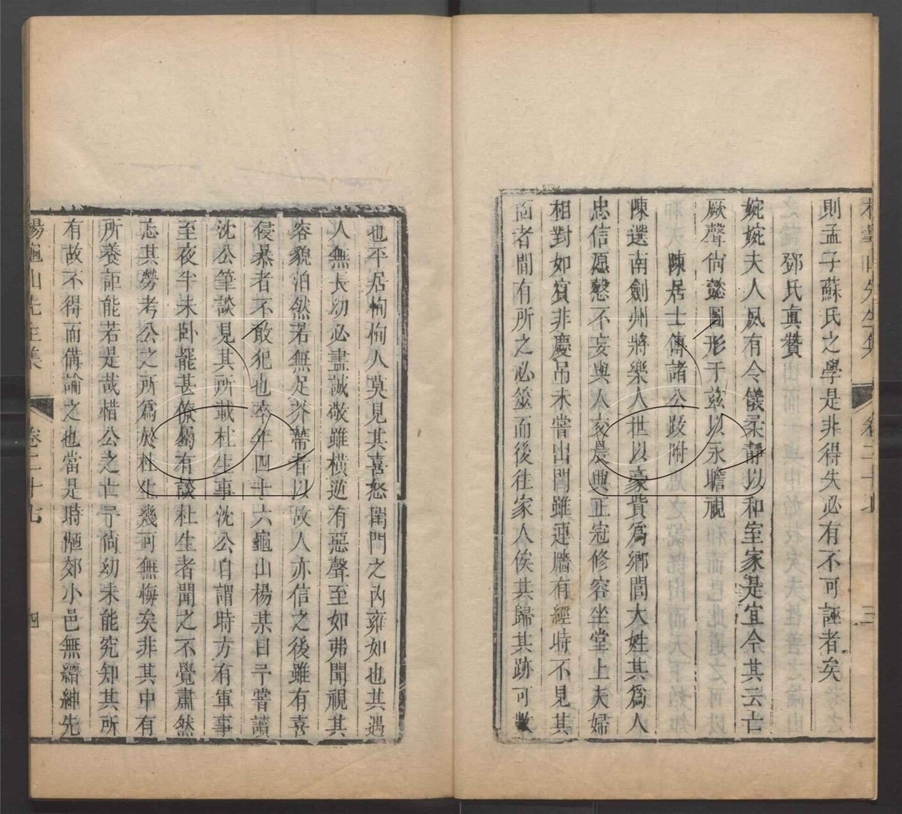 楊龜山先生集 卷二十七 三
則孟子蘇氏之學是非得失必有不可誣者矣
鄧氏真贊
婉婉夫人夙有令儀柔靜以和室家是宜今其云亡
厥聲尙懿圖形于玆以永瞻視
陳居士傳諸公跋附
陳選南劍州將樂人世以豪貲爲鄕閭大姓其爲人
忠信愿愨不妄與人交晨興正冠修容坐堂上夫婦
相對如賓非慶吊未嘗出閭雖連牆有經時不見其
面者間有所之必筮而後往家人俟其歸其跡可數
也平居恂恂人莫見其喜怒閨門之內雍如也其遇
人無長幼必盡誠敬雖橫逆有惡聲至如弗聞視其
容貌泊然若無足芥蔕者以故人亦信之後雖有喜
侵暴者不敢犯也卒年四十六龜山楊某曰予嘗讀
沈公筆談見其所載杜生事沈公自謂時方有軍事
至夜半未卧罷甚僚屬有談杜生者聞之不覺肅然
忘其勞考公之所爲於杜生幾可無悔矣非其中有
所養詎能若是哉惜公之亡予尙幼未能究知其所
有故不得而備論之也當是時陋郊小邑無縉紳先
楊龜山先生集 卷二十七 四